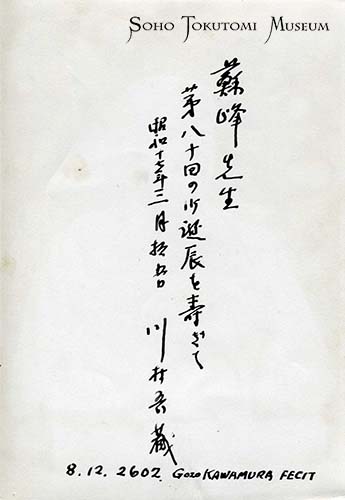 SOHO TOKUTOMI MUSEUM
蘇峰先生
第八十回の御誕辰を壽ぎて
昭和十七年三月拾五日 川村吾藏
8.12.2602 GOZO KAWAMURA FECIT